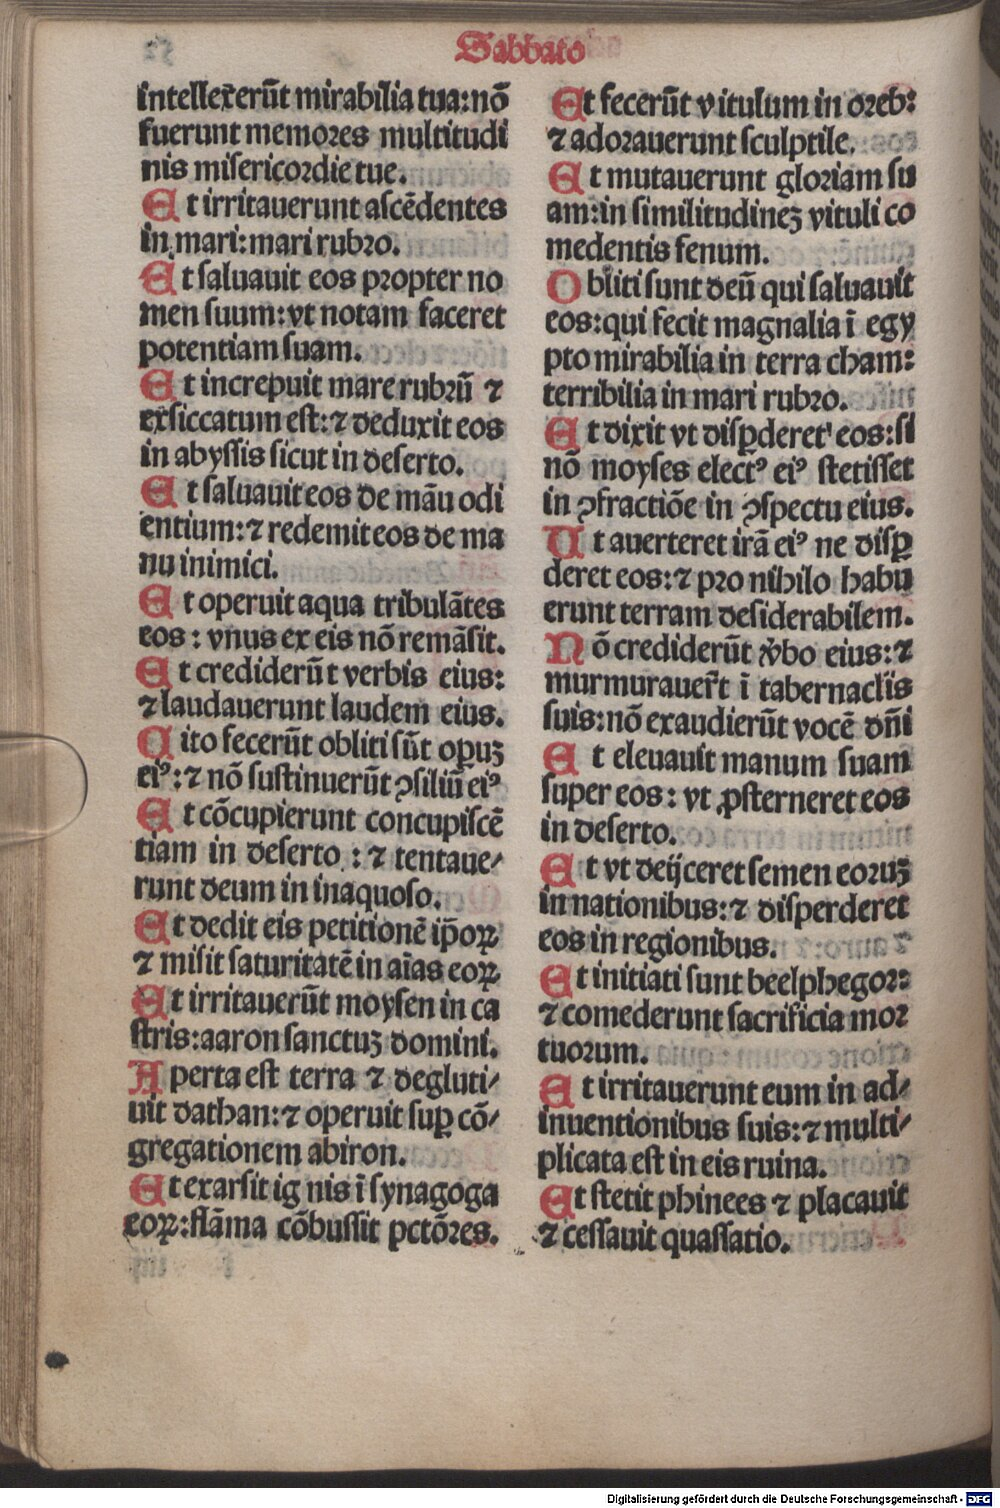 Sabbato
intellexerūt mirabilia tua:nō
fuerunt memores multitudi
nis misericordie tue.
Et irritauerunt ascēdentes
in mari:mari rubro.
Et saluauit eos propter no
men suum:vt notam faceret
potentiam suam.
Et increpuit mare rubrū ⁊
exsiccatum est:⁊ deduxit eos
in abyssis sicut in deserto.
Et saluauit eos de māu odi
entium:⁊ redemit eos de ma
nu inimici.
Et operuit aqua tribulātes
eos : vnus ex eis nō remāsit.
Et crediderūt verbis eius:
⁊ laudauerunt laudem eius.
Cito fecerūt obliti sūt opꝛuꝫ
eiꝰ:⁊ nō sustinuerūt ↄsiliū eiꝰ
Et cōcupierunt concupiscē
tiam in deserto : ⁊ tentaue⸗
runt deum in inaquoso.
Et dedit eis petitionē ip̄oꝝ
⁊ misit saturitatē in aīas eoꝝ
Et irritauerūt moysen in ca
stris:aaron sanctuꝫ domini.
Aperta est terra ⁊ degluti⸗
uit dathan:⁊ operuit suꝑ cō⸗
gregationem abiron.
Et exarsit ig nis ī synagoga
eoꝝ:flāma cōbussit pctōres.
Et fecerūt vitulum in oreb:
⁊ adorauerunt sculptile.
Et mutauerunt gloriam su
am:in similitudineꝫ vituli co
medentis fenum.
Obliti sunt deū qui saluauit
eos:qui fecit magnalia ī egy
pto mirabilia in terra cham:
terribilia in mari rubro.
Et dixit vt disꝑderet' eos:si
nō moyses electꝰ eiꝰ stetisset
in ↄfractiōe in ↄspectu eius.
Ut auerteret irā eiꝰ ne disꝑ
deret eos:⁊ pro nihilo habu
erunt terram desiderabilem.
Nō crediderūt v̆bo eius:⁊
murmurauer̄t ī tabernacl̄is
suis:nō exaudierūt vocē dn̄i
Et eleuauit manum suam
super eos : vt ꝓsterneret eos
in deserto.
Et vt deijceret semen eoruꝫ
in nationibus:⁊ disperderet
eos in regionibus.
Et initiati sunt beelphegor:
⁊ comederunt sacrificia mor
tuorum.
Et irritauerunt eum in ad⸗
inuentionibus suis:⁊ multi⸗
plicata est in eis ruina.
Et stetit phinees ⁊ placauit
⁊ cessauit quassatio.
Digitalisierung gefördert durch die Deutsche Forschungsgemeinschaft - DFG